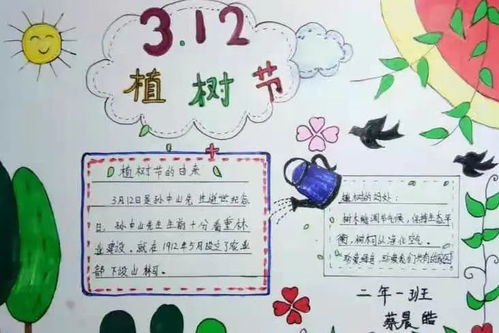 3.12
植树节
植树节的由来
3月12日是孙中山先生逝世纪念
日。孙中山先生生前十分看重林
业建设。就在1912年5月设立了农业
部下设山林司。
植树的好处:
树木能调节气候,保持生态平
衡,树林可以净化空气。
二年一班
蔡晨皓